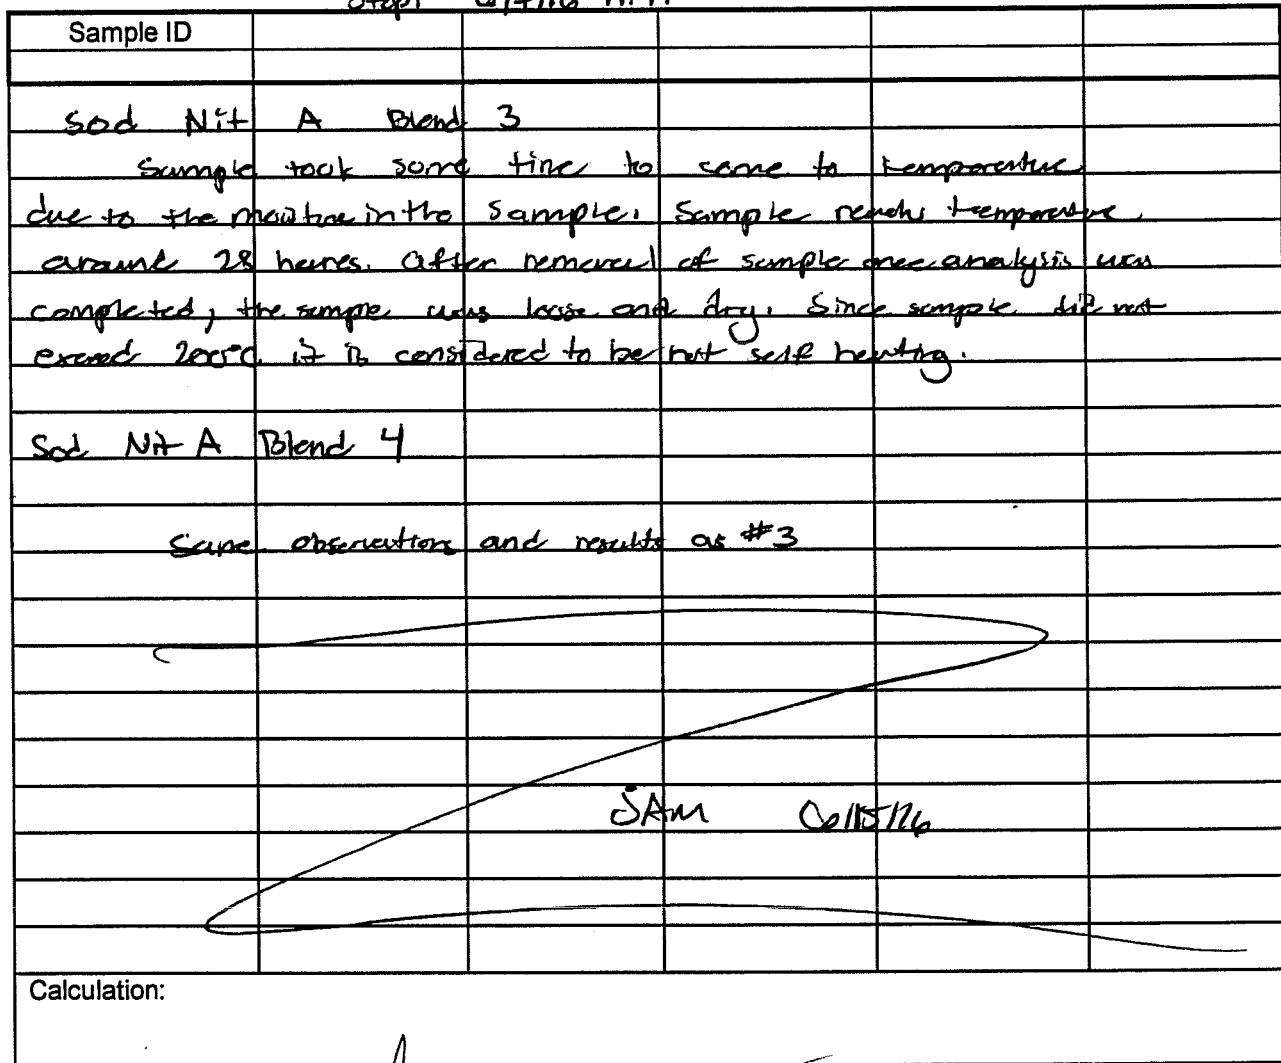 Stop:
Sample ID
Sod Nit A Blend 3
Sample took some time to come to temperature
due to the moisture in the sample. Sample reachs temperature
around 28 houres. After removal of sample once analysis was
completed, the sample was loose and dry. Since sample did not
exceed 200°C it is considered to be not self heating.
Sod Nit A Blend 4
Same observations and results as #3
JAM 6/15/16
Calculation: